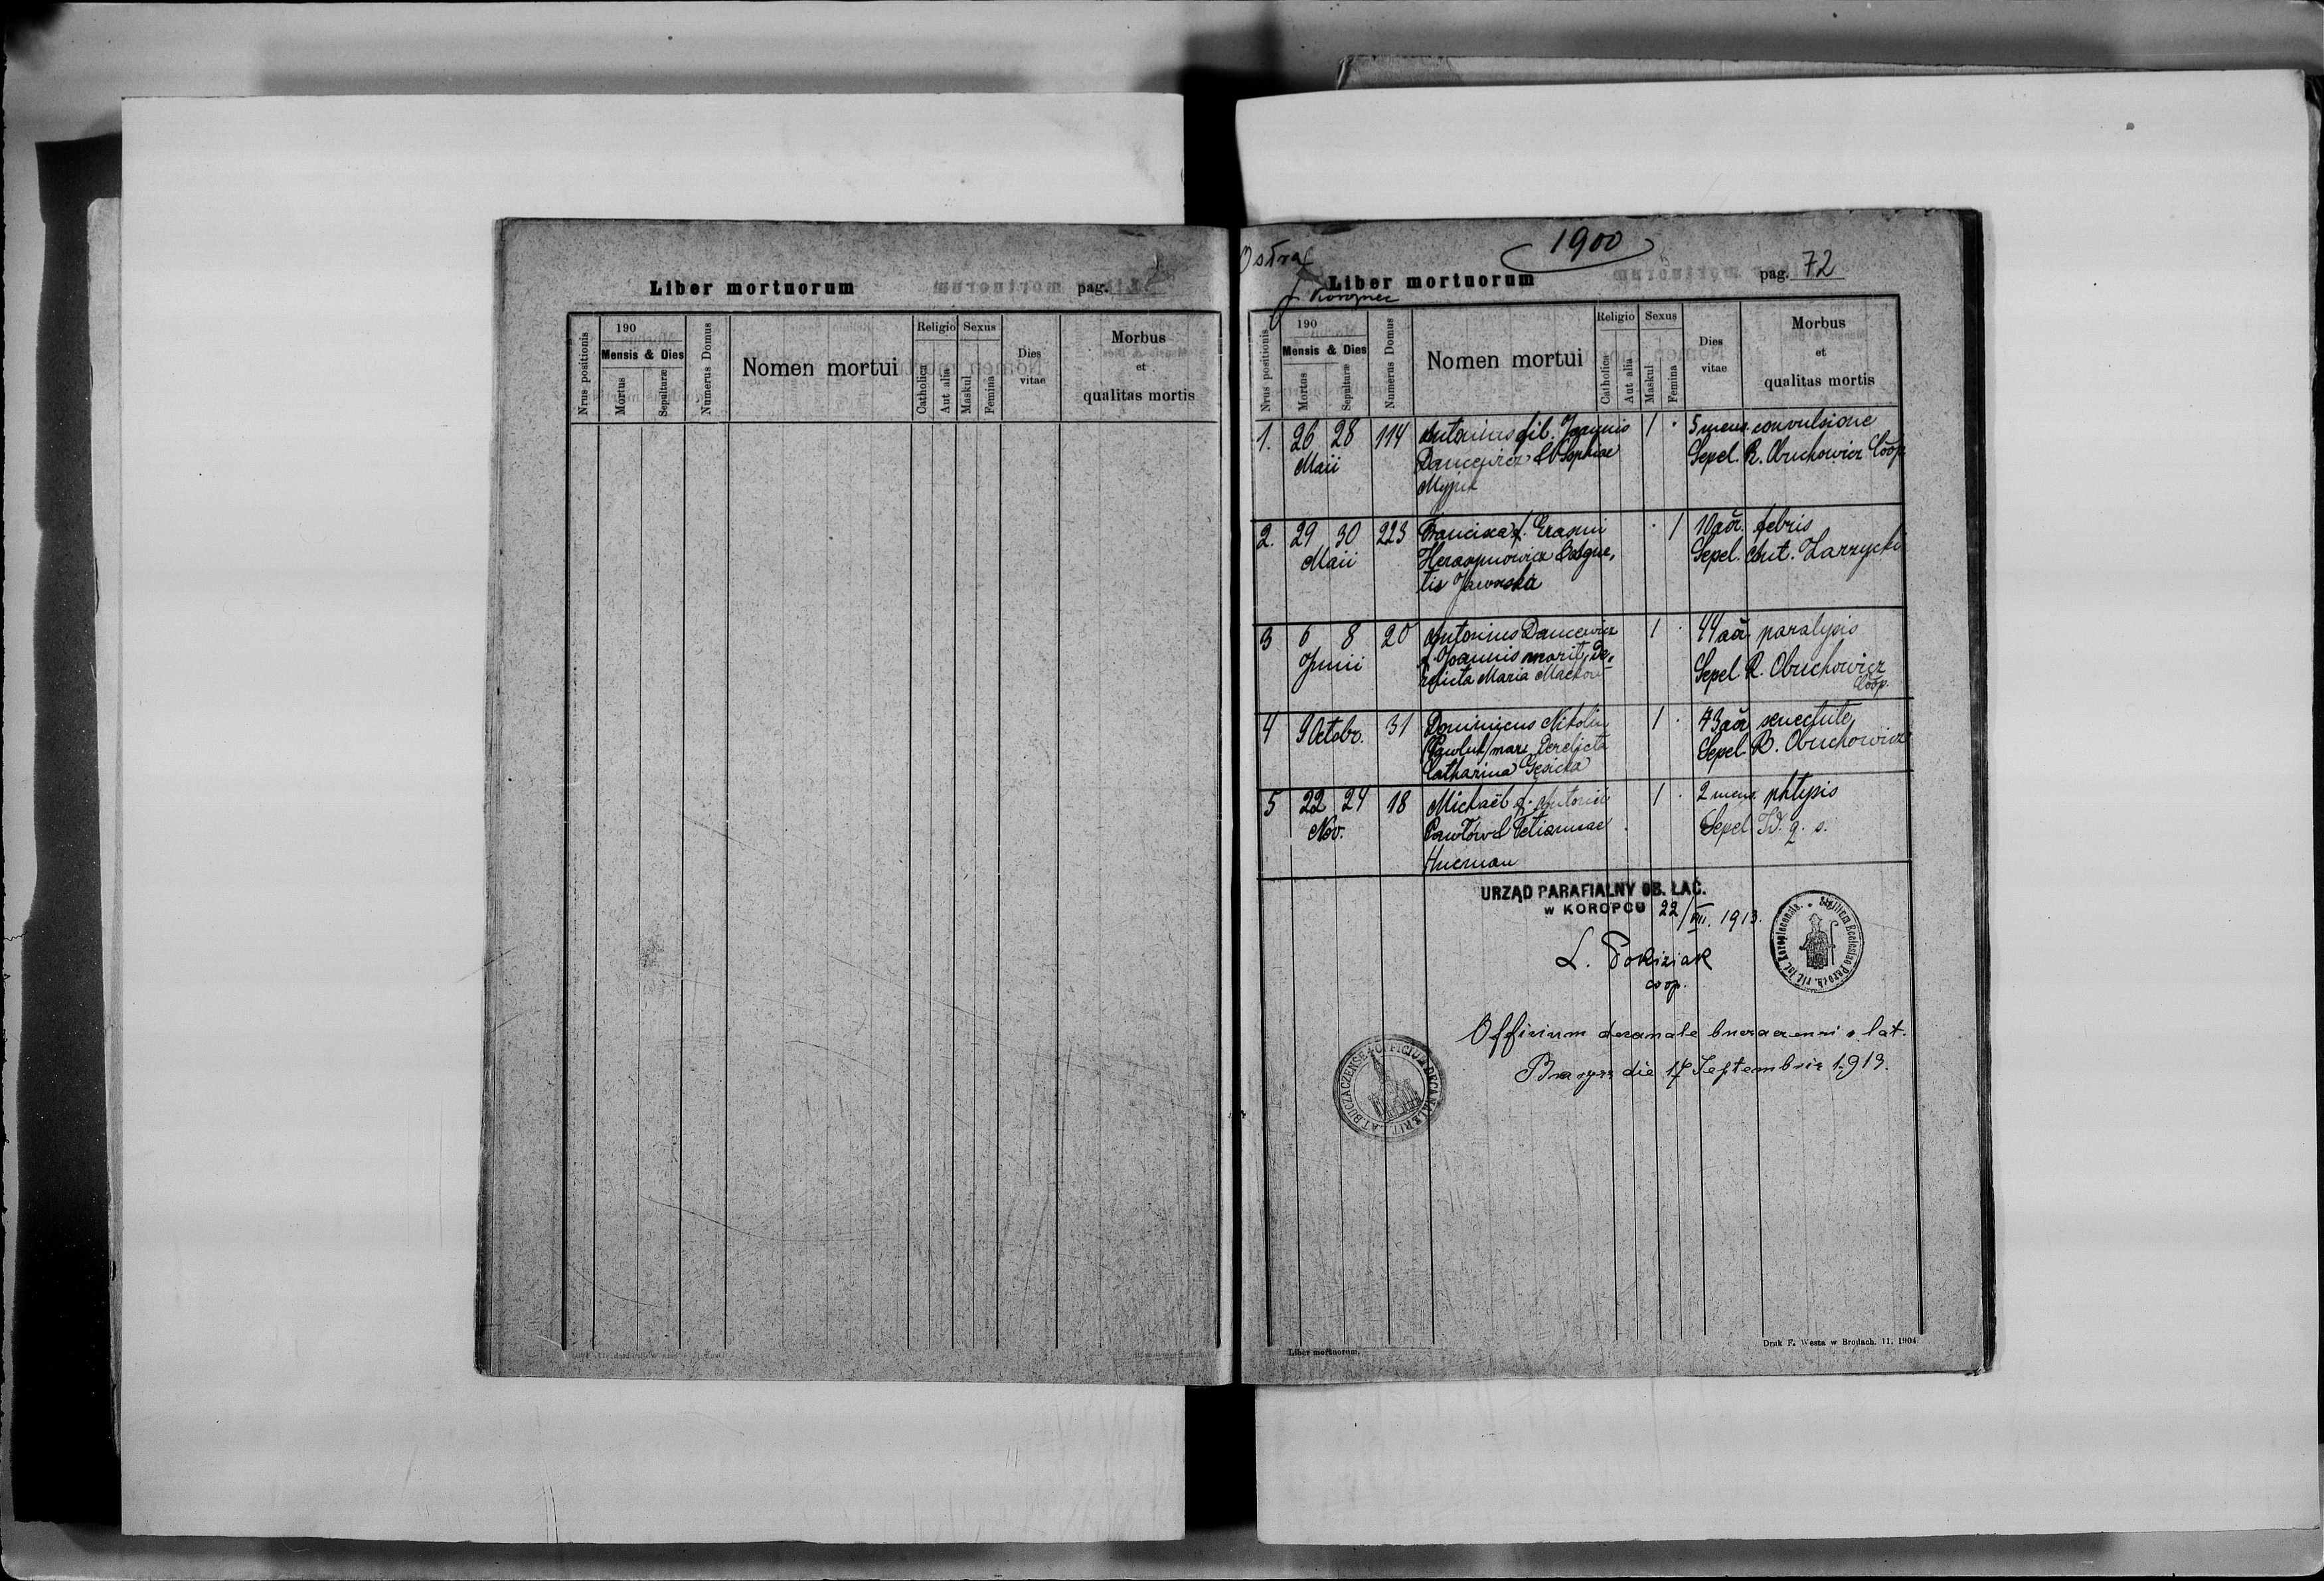 Liber mortuorum
pag.
Nrus positionis
190
Mensis & Dies
Mortus
Sepulturæ
Numerus Domus
Nomen mortui
Religio
Catholica
Aut alia
Sexus
Maskul
Femina
Dies
vitae
Morbus
et
qualitas mortis
Ostra
1900
Liber mortuorum
pag. 72
Koropiec
Nrus positionis
190
Mensis & Dies
Mortus
Sepulturæ
Numerus Domus
Nomen mortui
Religio
Catholica
Aut alia
Sexus
Maskul
Femina
Dies
vitae
Morbus
et
qualitas mortis
1. 26 28 114 Antonius fil. Joannis 1 · 5 mens. convulsione
Maii Dancewicz & Sophiae Sepel. R. Obuchowicz Coop.
2. 29 30 223 Francisca f. Erasmi · 1 10 aõr. febris
Maii Sepel. Ant. Zarzycki
tis Jaworska
3 6 8 20 Antonius Dancewicz 1 · 44 aõr. paralysis
Junii f. Joannis marit. De- Sepel R. Obuchowicz
relicta Maria Coop.
4 9 Octobr. 31 Dominicus 1 · 73 aõr. senectute
Pawluk mar. Derelicta Sepel. R. Obuchowicz
Catharina
5 22 24 18 Michaël f. Antonii 1 · 2 mens. phtysis
Nov. Pawłów & Tetiannae Sepel. W. q. s.
URZĄD PARAFIALNY OB. ŁAC.
w KOROPCU 22/VII. 1913.
coop.
Sigillum Ecclesiae Paroch. rit. lat. Koropiecensis.
Officium decanale buczacensi r. lat.
Barysz die 17 Septembris 1913.
OFFICIUM DECANALE RIT. LAT. BUCZACZENSE
Liber mortuorum.
Druk F. Westa w Brodach. 11. 1904